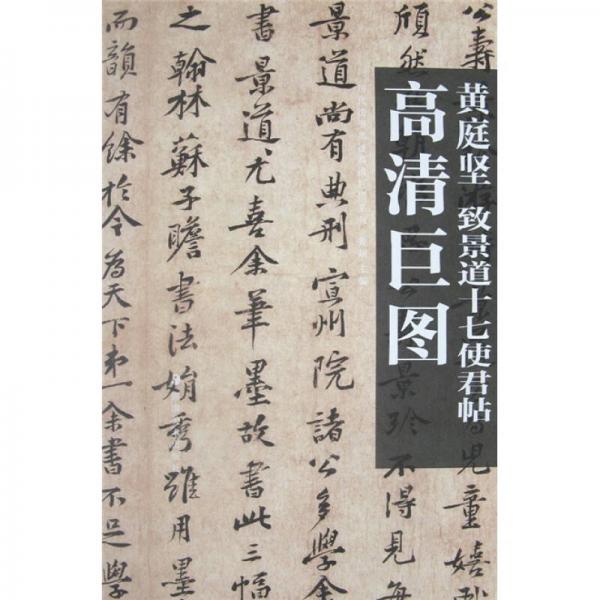 黄庭坚 致景道十七使君帖
高清巨图
公壽
頎然
景 珍 不得見每
兒童嬉戏
景道尚有典刑宣州院諸公多學余
書景道尤喜余筆墨故書此三幅
之翰林蘇子瞻書法娟秀雖用墨
而韻有餘於今為天下第一余書不足學